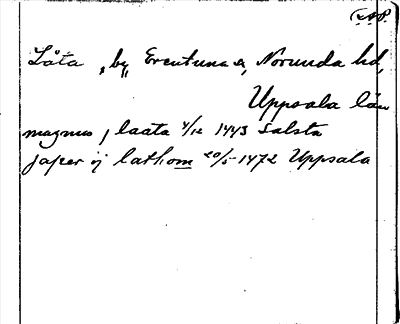 Låta, by, Ärentuna sn, Norunda hd,
Uppsala län
magnus j laata 4/12 1443 Salsta
japer ij lathom 20/5 1472 Uppsala